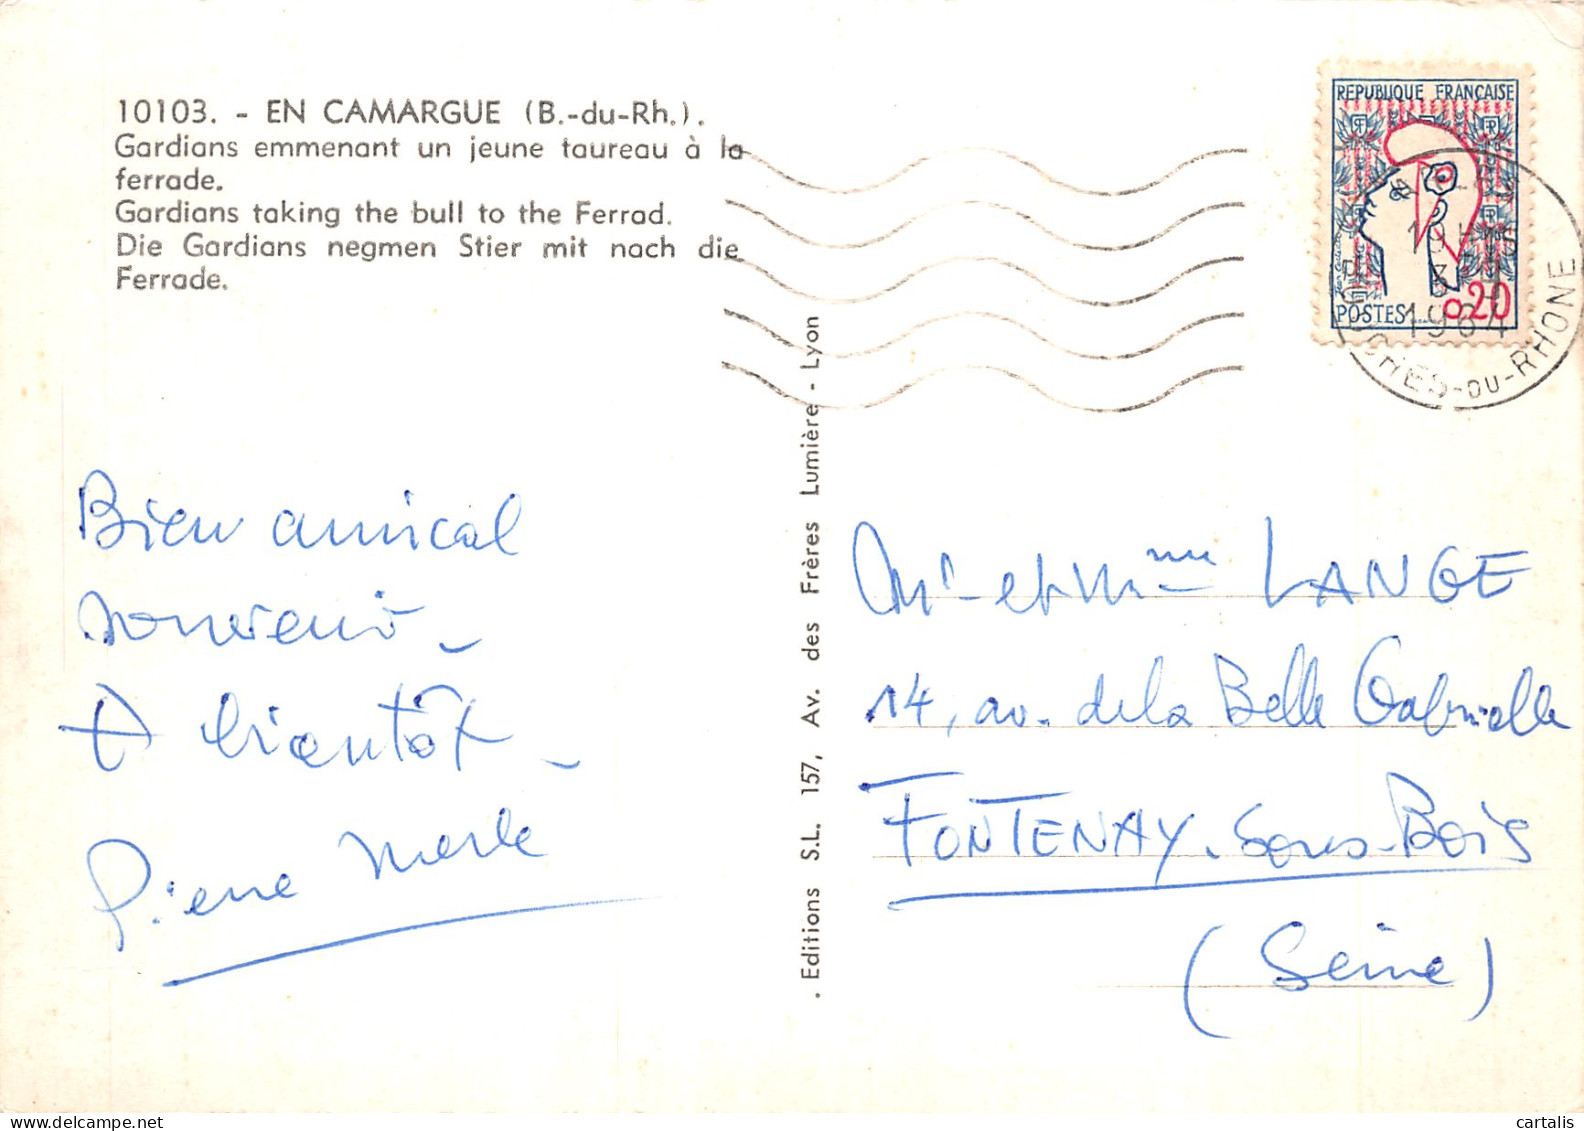 10103. - EN CAMARGUE (B.-du-Rh.).
Gardians emmenant un jeune taureau à la
ferrade.
Gardians taking the bull to the Ferrad.
Die Gardians negmen Stier mit nach die
Ferrade.
Bien amical
souvenir -
A bientôt -
Pierre Merle
. Editions S.L. 157, Av. des Frères Lumière - Lyon
REPUBLIQUE FRANÇAISE
POSTES
0,20
1964
BOUCHES-DU-RHONE
Mr et Mme LANGE
14, av. de la Belle Gabrielle
FONTENAY-sous-Bois
(Seine)
cartalis
delcampe.net